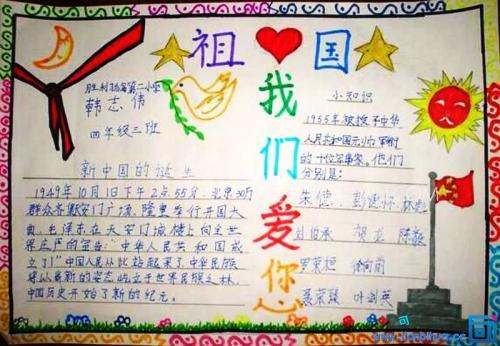 祖❤国
我们爱你
胜利胜海第二小学
韩志伟
四年级三班
新中国的诞生
1949年10月1日下午2点55分,北京30万
群众齐聚天安门广场,隆重举行开国大
典,毛泽东在天安门城楼上向全世
界庄严的宣告:"中华人民共和国成
立了!"中国人民从此站起来了,中华民族
将以崭新的姿态屹立于世界民族之林,
中国历史开始了新的纪元。
小知识
1955年被授予中华
人民共和国元帅军衔
的十位军事家,他们
分别是:
朱德、彭德怀、林彪
刘伯承 贺龙 陈毅
罗荣桓 徐向前
聂荣臻 叶剑英